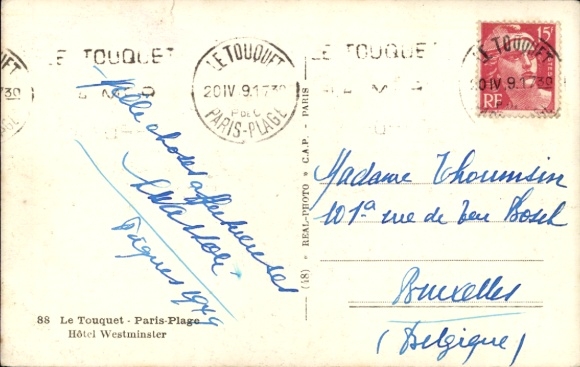 LE TOUQUET
LE TOUQUET
20 IV. 9.1730
P. DE C.
PARIS-PLAGE
LE TOUQUET
LE TOUQUET
20 IV. 9.1730
15F
POSTES
RF
Mille choses affectueuses
Pâques 1949
88 Le Touquet - Paris-Plage
Hôtel Westminster
(48) » REAL-PHOTO » C.A.P. - PARIS
Madame Thoumsin
101a rue de Ten Bosch
Bruxelles
(Belgique)